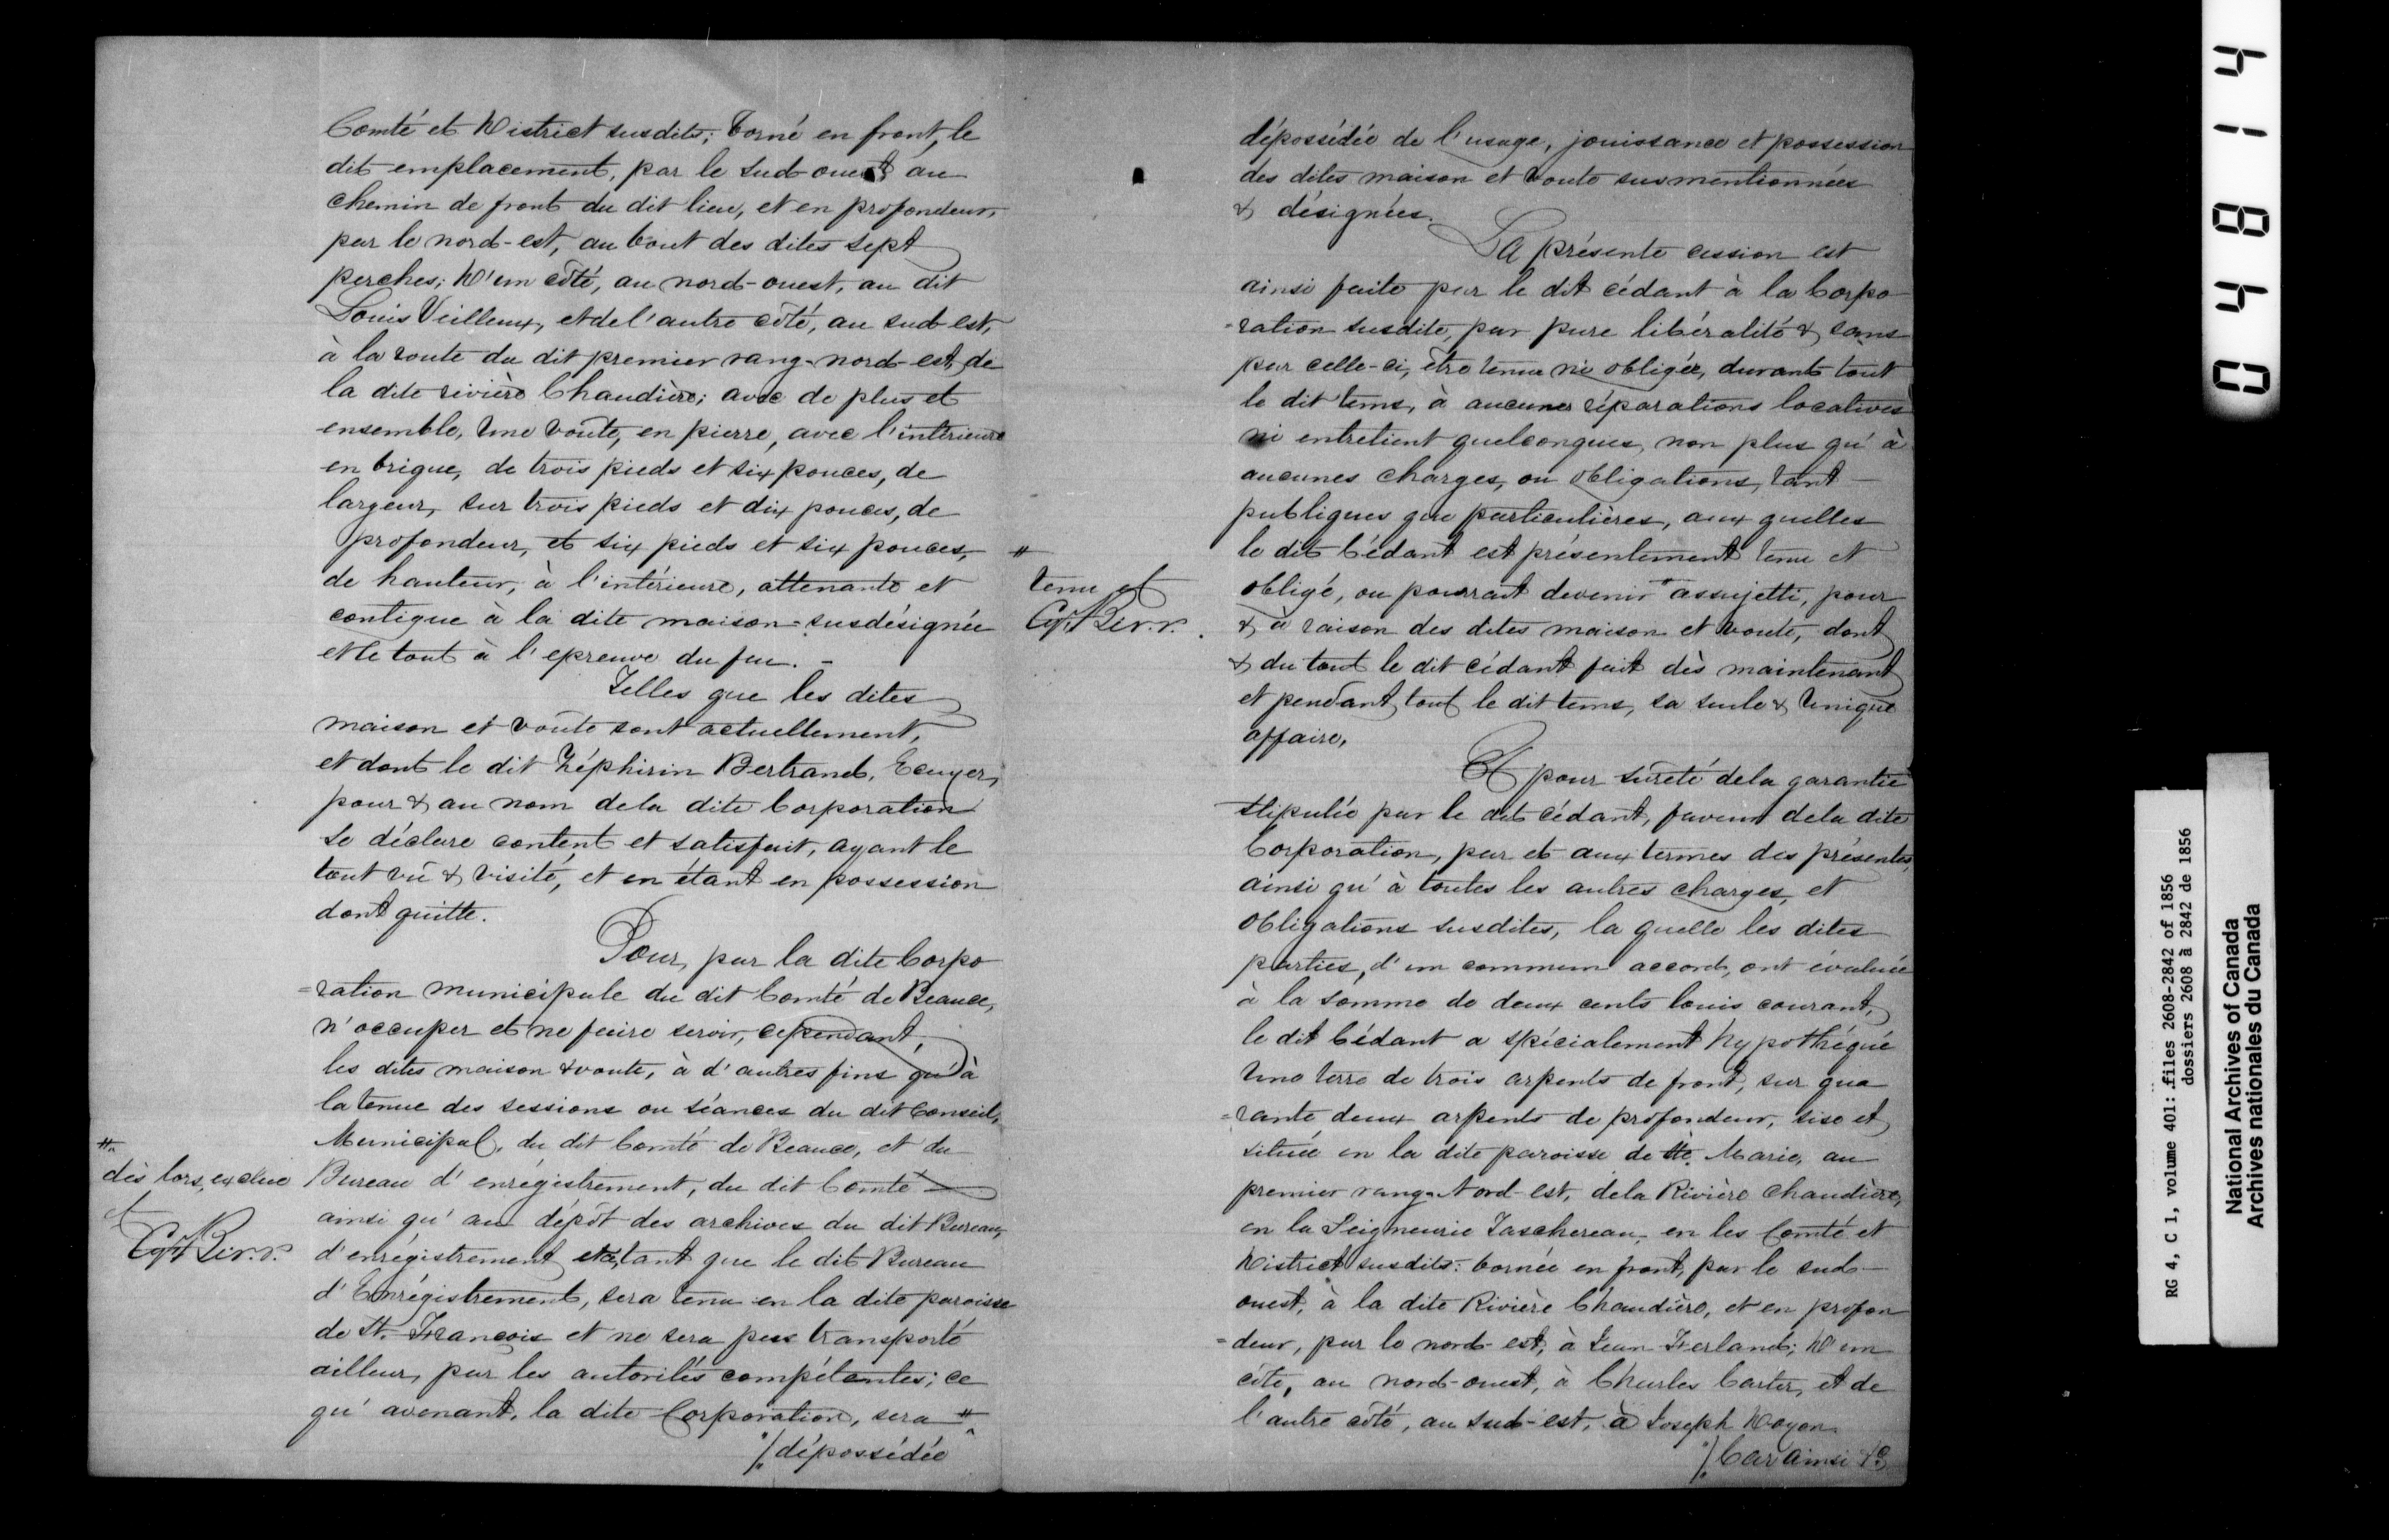 Comté et District susdits; borné en front, le
dit emplacement, par le sud-ouest au
chemin de front du dit lieu, et en profondeur,
par le nord-est, au bout des dites sept
perches; D'un côté, au nord-ouest, au dit
Louis Veilleux, et de l'autre côté, au sud-est,
à la route du dit premier rang-nord-est, de
la dite rivière Chaudière; avec de plus et
ensemble, Une Voûte, en pierre, avec l'intérieure
en brique, de trois pieds et six pouces, de
largeur, sur trois pieds et dix pouces, de
profondeur, et six pieds et six pouces,
de hauteur, à l'intérieure, attenante et
contigue à la dite maison-susdésignée
et le tout à l'epreuve du feu. -
Telles que les dites
maison et voûte sont actuellement,
et dont le dit Zéphirin Bertrand, Ecuyer,
pour & au nom de la dite Corporation
se déclare content et satisfait, ayant le
tout vû & visité, et en étant en possession
dont quitte.
Pour, par la dite Corpo
=ration municipale du dit Comté de Beauce,
n'occuper et ne faire servir, cependant,
les dites maison & voute, à d'autres fins qu'à
la tenue des sessions ou séances du dit Conseil,
Municipal, du dit Comté de Beauce, et du
Bureau d'enrégistrement, du dit Comté
ainsi qu'au dépôt des archives du dit Bureau,
d'enrégistrement, tant que le dit Bureau
d'Enrégistrement, sera tenu en la dite paroisse
de St. François et ne sera pas transporté
ailleur, par les autorités compétantes; ce
qu'avenant, la dite Corporation, sera #
/. dépossédée
#
dès lors, exclue
et
dépossédée de l'usage, jouissance et possession
des dites maison et voute susmentionnées
& désignées.
La présente cession est
ainsi faite par le dit cédant à la Corpo
=ration susdite, par pure libéralité & sans
par celle-ci, être tenue ni obligée, durant tout
le dit tems, à aucunes réparations locatives
ni entretient quelconques, non plus qu'à
aucunes charges, ou obligations, tant -
publiques que particulières, aux quelles
le dit Cédant est présentement tenu et
obligé, ou pourrait devenir # assujetti, pour
& à raison des dites maison et voute, dont
& du tout le dit cédant fait dès maintenant
et pendant, tout le dit tems, sa seule & Unique
affaire,
#
tenu et
Et pour sûreté de la garantie
stipulée par le dit cédant, faveur de la dite
Corporation, par et aux termes des présentes,
ainsi qu'à toutes les autres charges, et
obligations susdites, la quelle les dites
parties, d'un commun accord, ont évaluée
à la somme de deux cents louis courant,
le dit Cédant a spécialement hypothéqué
Une terre de trois arpents de front, sur qua
=rante deux arpents de profondeur, sise et
située en la dite paroisse de Ste. Marie, au
premier rang-Nord-est, de la Rivière Chaudière,
en la Seigneurie Taschereau, en les Comté et
District susdits: bornée en front, par le sud-
ouest, à la dite Rivière Chaudière, et en profon
=deur, par le nord-est, à Jean Ferland; D'un
côté, au nord-ouest, à Charles Carter, et de
l'autre côté, au sud-est, à Joseph Doyon
/. Car ainsi &c
04814
RG 4, C 1, volume 401: files 2608-2842 of 1856
dossiers 2608 à 2842 de 1856
National Archives of Canada
Archives nationales du Canada